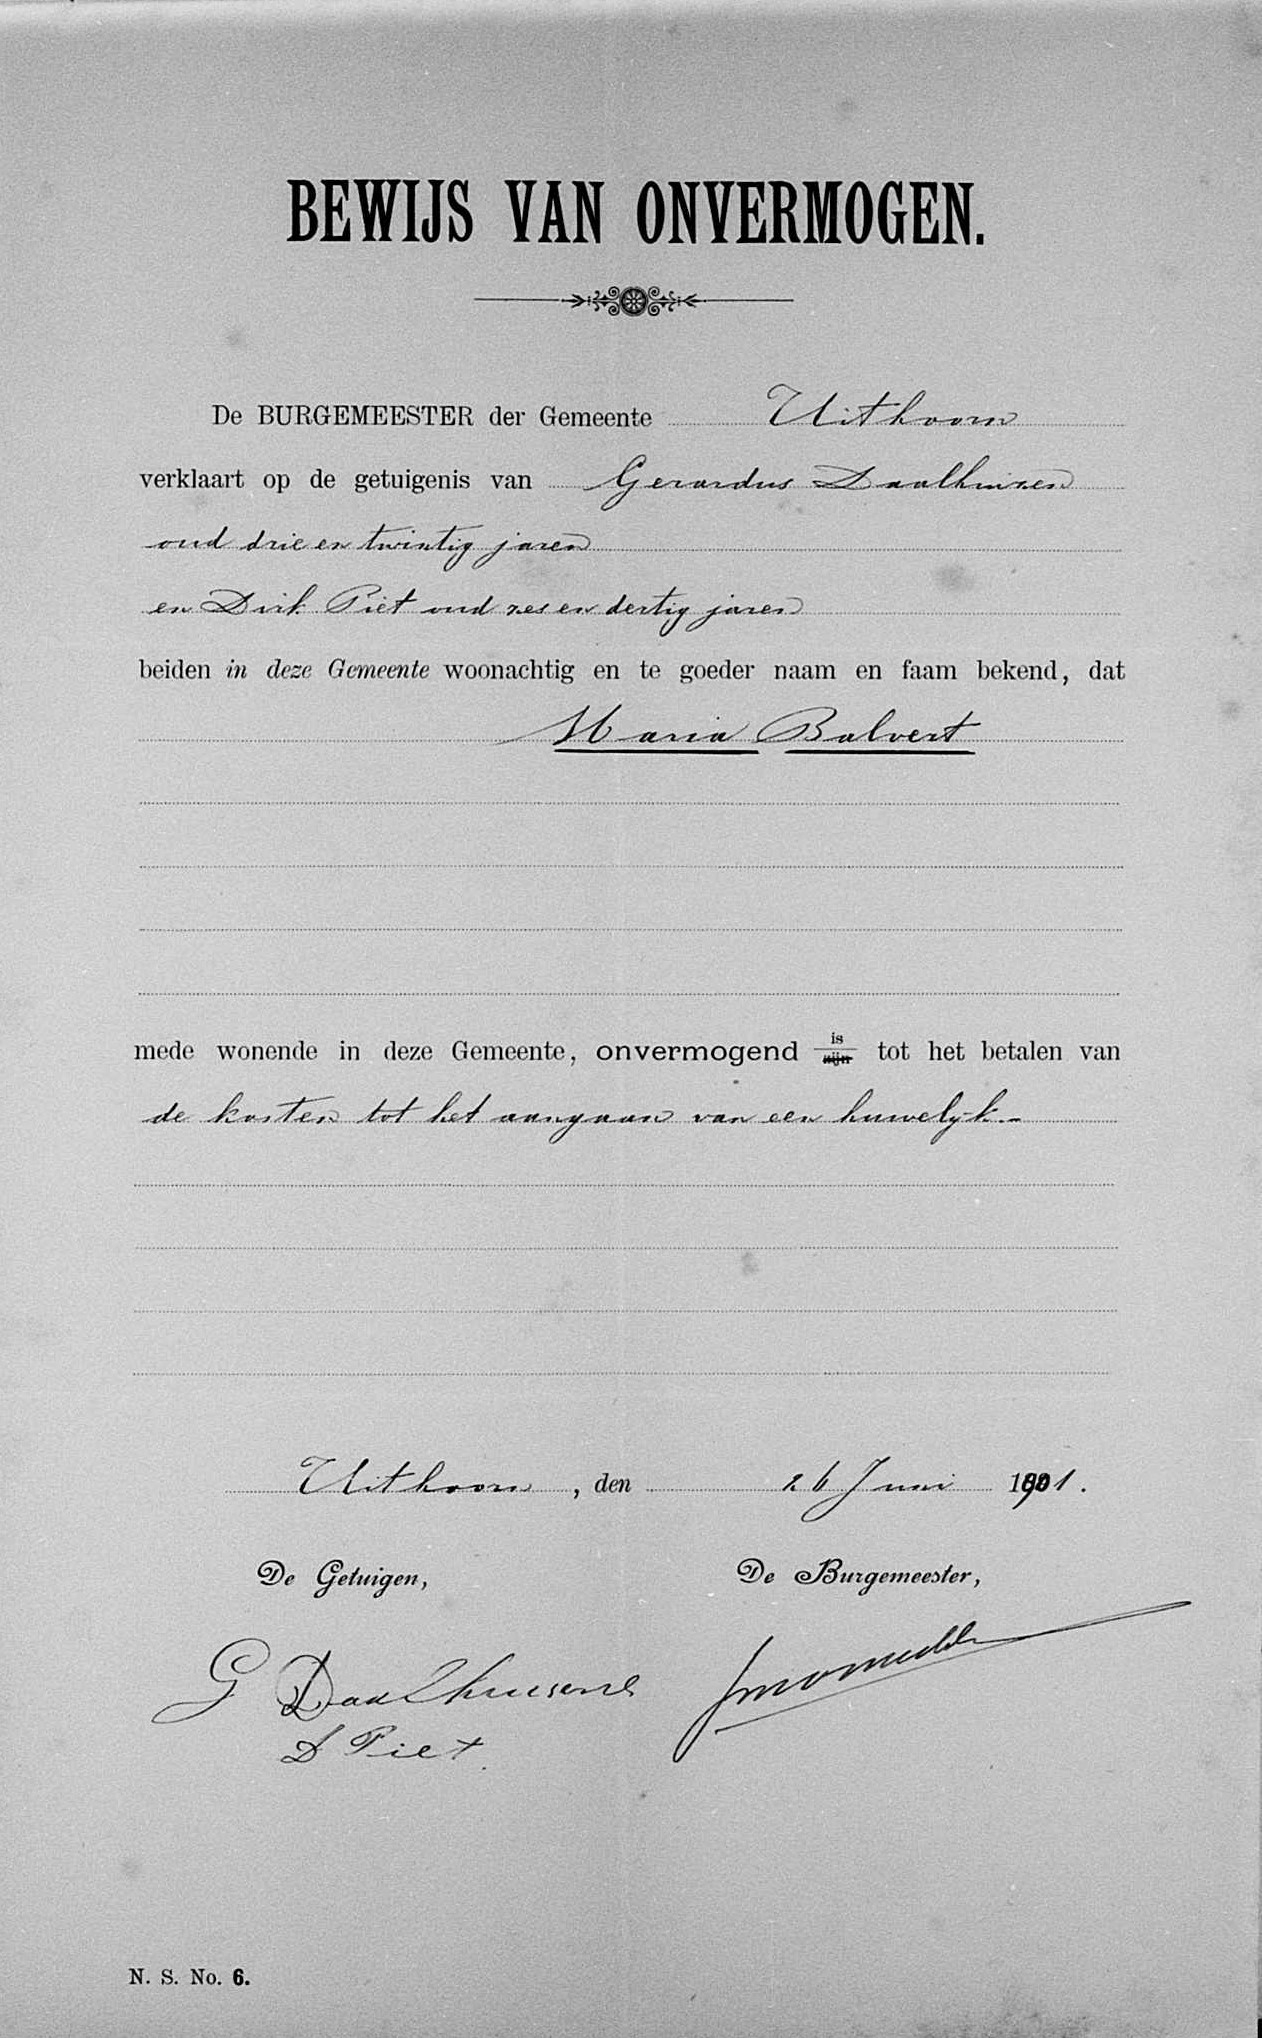 BEWIJS VAN ONVERMOGEN.
De BURGEMEESTER der Gemeente Uithoorn
verklaart op de getuigenis van Gerardus Daalhuizen
oud drie en twintig jaren
en Dirk Piet oud zes en dertig jaren
beiden in deze Gemeente woonachtig en te goeder naam en faam bekend, dat
Maria Balvert
mede wonende in deze Gemeente, onvermogend is/zijn tot het betalen van
de kosten tot het aangaan van een huwelijk.-
Uithoorn, den 26 Juni 1901.
De Getuigen, De Burgemeester,
G Daalhuisen
D Piet.
N. S. No. 6.